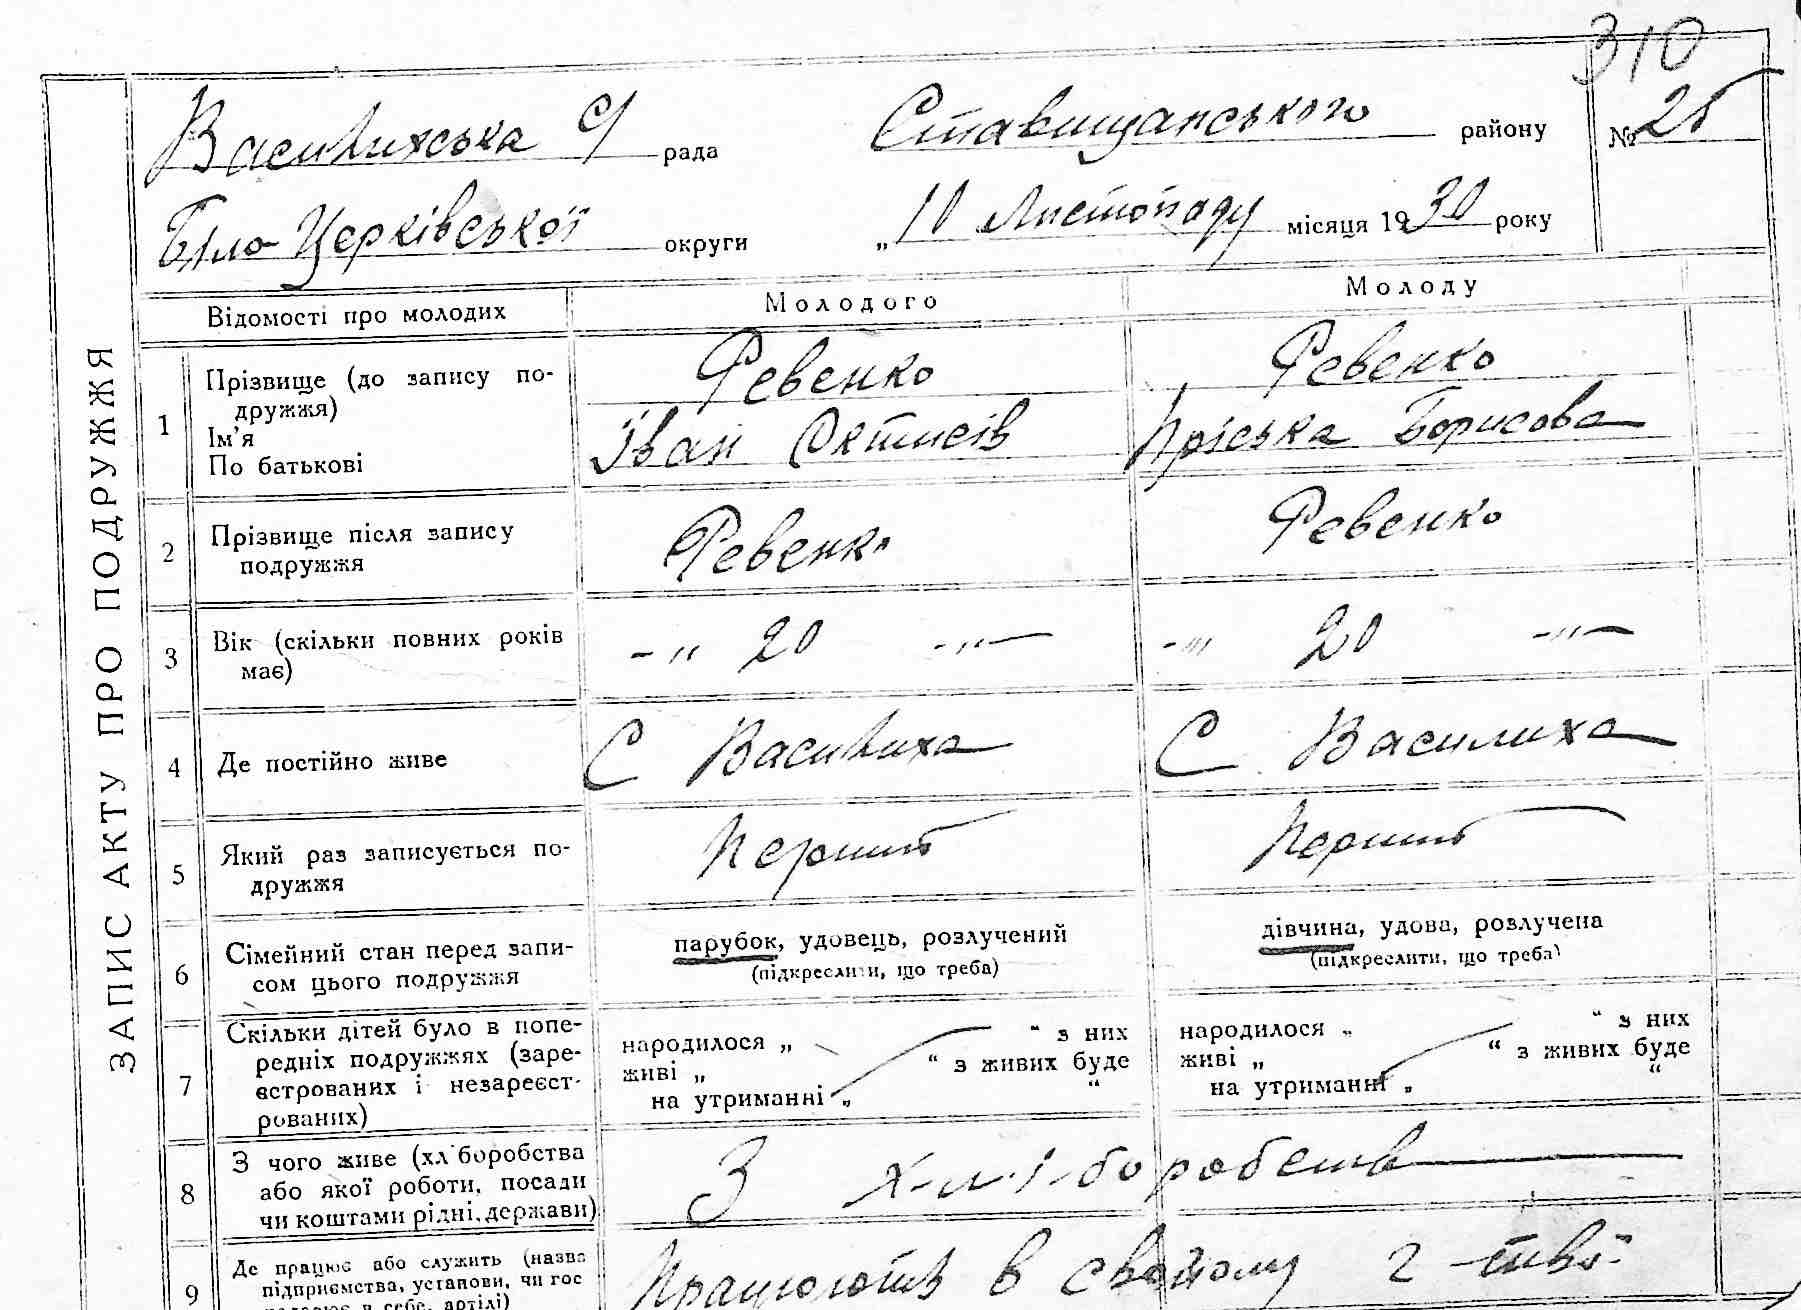 310
Василихська С/ рада Ставищанського району № 25
Біло-Церківської округи „10 Листопаду місяця 1930 року
ЗАПИС АКТУ ПРО ПОДРУЖЖЯ
Відомості про молодих Молодого Молоду
1 Прізвище (до запису по- Ревенко Ревенко
дружжя)
Ім'я Іван Приська Борисова
По батькові
2 Прізвище після запису Ревенко Ревенко
подружжя
3 Вік (скільки повних років -„ 20 -„- -„ 20 -„-
має)
4 Де постійно живе С Василиха С Василиха
5 Який раз записується по- Перший Перший
дружжя
6 Сімейний стан перед запи- парубок, удовець, розлучений дівчина, удова, розлучена
сом цього подружжя (підкреслити, що треба) (підкреслити, що треба)
7 Скільки дітей було в попе- народилося „ “ з них народилося „ “ з них
редніх подружжях (заре- живі „ “ з живих буде живі „ “ з живих буде
єстрованих і незареєст- на утриманні „ “ на утриманні „ “
рованих)
8 З чого живе (хліборобства З х-л-і-боробств
або якої роботи, посади
чи коштами рідні, держави)
9 Де працює або служить (назва Працюють в своєму г-тві
підприємства, установи, чи гос